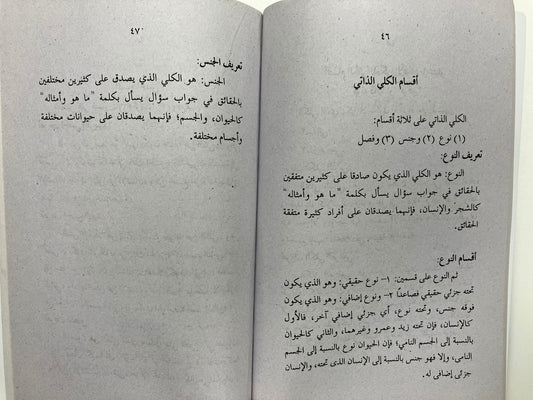 ٤٦
أقسام الكلي الذاتي
الكلي الذاتي على ثلاثة أقسام:
(١) نوع (٢) وجنس (٣) وفصل
تعريف النوع:
النوع: هو الكلي الذي يكون صادقا على كثيرين متفقين
بالحقائق في جواب سؤال يسأل بكلمة "ما هو وأمثاله"
كالشجر والإنسان، فإنهما يصدقان على أفراد كثيرة متفقة
الحقائق.
أقسام النوع:
ثم النوع على قسمين: ١- نوع حقيقي: وهو الذي يكون
تحته جزئي حقيقي فصاعدًا ٢- ونوع إضافي: وهو الذي يكون
فوقه جنس، وتحته نوع، أي جزئي إضافي آخر، فالأول
كالإنسان، فإن تحته زيد وعمرو وغيرهما، والثاني كالحيوان
بالنسبة إلى الجسم النامي؛ فإن الحيوان نوع بالنسبة إلى الجسم
النامى، وإلا فهو جنس بالنسبة إلى الإنسان الذى تحته، والإنسان
جزئى إضافى له.
٤٧
تعريف الجنس:
الجنس: هو الكلي الذي يصدق على كثيرين مختلفين
بالحقائق في جواب سؤال يسأل بكلمة "ما هو وأمثاله"
كالحيوان، والجسم؛ فإنهما يصدقان على حيوانات مختلفة
وأجسام مختلفة.